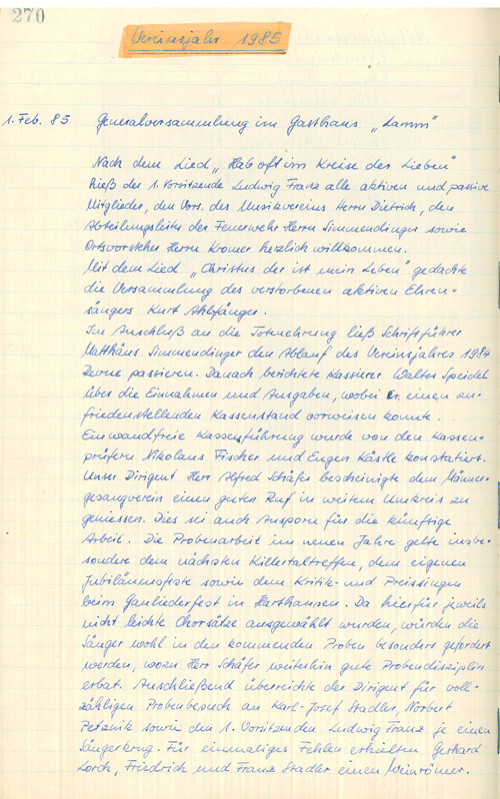 270
Vereinsjahr 1985
1. Feb. 85 Generalversammlung im Gasthaus „Lamm"
Nach dem Lied „Hab oft im Kreise der Lieben"
hieß der 1. Vorsitzende Ludwig Franz alle aktiven und passive
Mitglieder, den Vors. des Musikvereins Herrn Dietrich, den
Abteilungsleiter der Feuerwehr Herrn Simmendinger sowie
Ortsvorsteher Herrn Kromer herzlich willkommen.
Mit dem Lied „Christus der ist mein Leben" gedachte
die Versammlung des verstorbenen aktiven Ehren-
sängers Kurt Ahlfänger.
Im Anschluß an die Totenehrung ließ Schriftführer
Matthäus Simmendinger den Ablauf des Vereinsjahres 1984
Revue passieren. Danach berichtete Kassierer Walter Speidel
über die Einnahmen und Ausgaben, wobei er einen zu-
friedenstellenden Kassenstand vorweisen konnte.
Einwandfreie Kassenführung wurde von den Kassen-
prüfern Nikolaus Fischer und Eugen Kästle konstatiert.
Unser Dirigent Herr Alfred Schäfer bescheinigte dem Männer-
gesangverein einen guten Ruf in weitem Umkreis zu
geniessen. Dies sei auch Ansporn für die künftige
Arbeit. Die Probenarbeit im neuen Jahre gelte insbe-
sondere dem nächsten Killertaltreffen, dem eigenen
Jubiläumsfeste sowie dem Kritik- und Preissingen
beim Gauliederfest in Harthausen. Da hierfür jeweils
nicht leichte Chorsätze ausgewählt wurden, würden die
Sänger wohl in den kommenden Proben besonders gefordert
werden, wozu Herr Schäfer weiterhin gute Probendisziplin
erbat. Anschließend überreichte der Dirigent für voll-
zähligen Probenbesuch an Karl-Josef Stadler, Norbert
Petznik sowie den 1. Vorsitzenden Ludwig Franz je einen
Sängerkrug. Für einmaliges Fehlen erhielten Gerhard
Lorch, Friedrich und Franz Stadler einen Weinrömer.